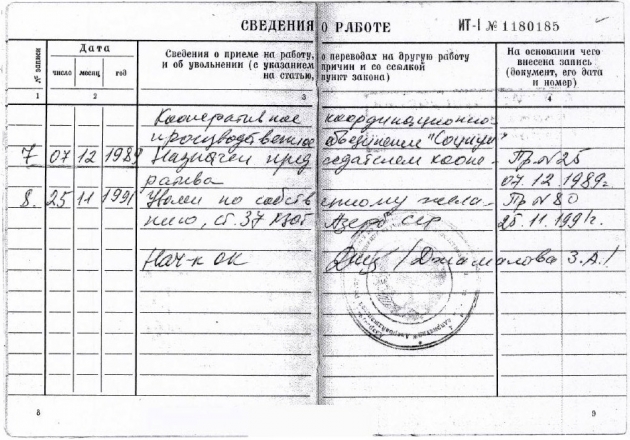 СВЕДЕНИЯ О РАБОТЕ ИТ-I № 1180185
№ записи
Дата
Сведения о приеме на работу, о переводах на другую работу
и об увольнении (с указанием причин и со ссылкой
на статью, пункт закона)
На основании чего
внесена запись
(документ, его дата
и номер)
число месяц год
1 2 3 4
Кооперативное координационно-
производственное объединение
7 07 12 1989 Назначен председателем коопе- Пр. № 25
ратива 07.12.1989г.
8. 25 11 1991 Уволен по собственному жела- Пр. № 80
нию, ст. 37 КЗОТ Азерб. ССР 25.11.1991г.
Нач-к ОК /Джамалова З.А./
8 9